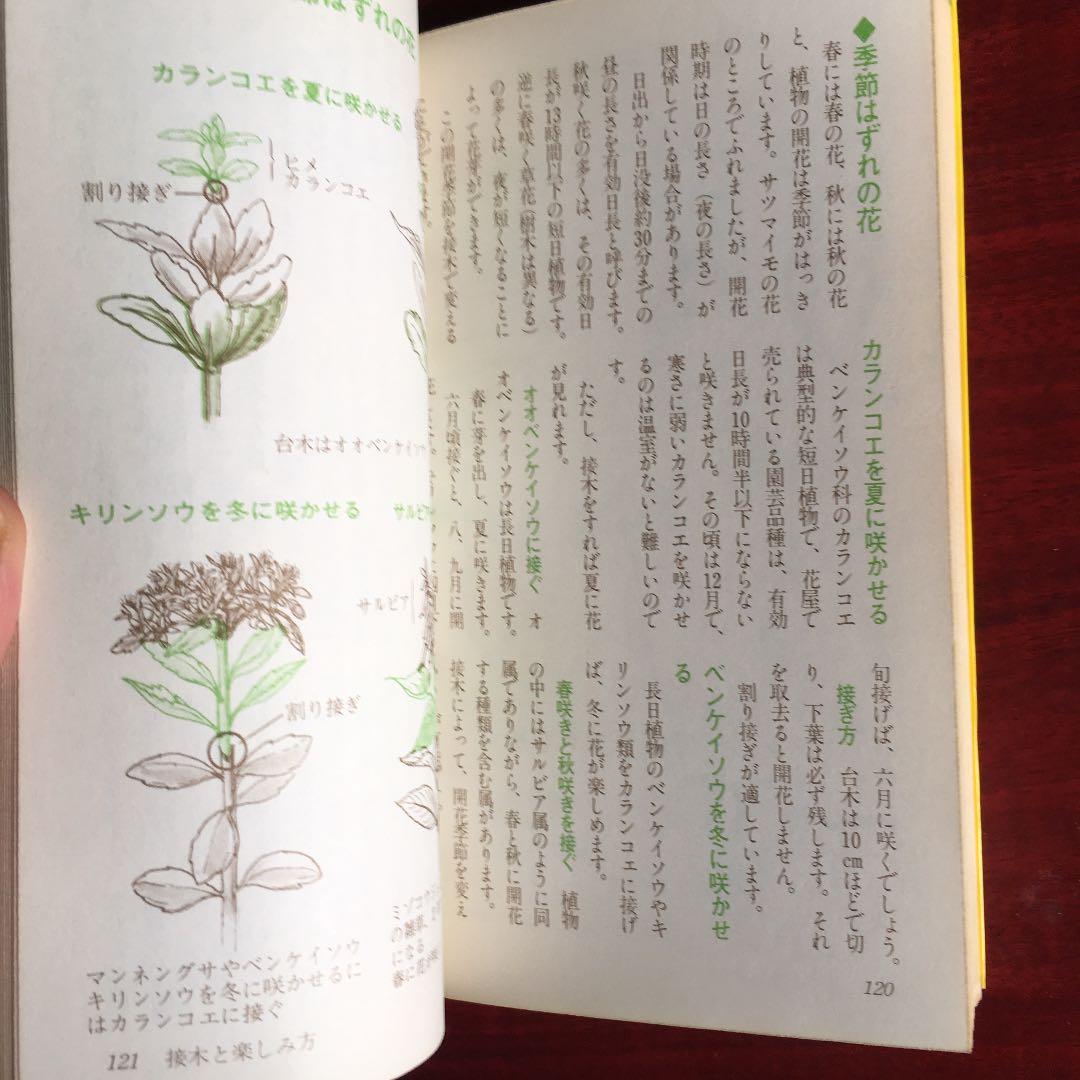 ◆季節はずれの花
春には春の花、秋には秋の花
と、植物の開花は季節がはっき
りしています。サツマイモの花
のところでふれましたが、開花
時期は日の長さ（夜の長さ）が
関係している場合があります。
日出から日没後約30分までの
昼の長さを有効日長と呼びます。
秋咲く花の多くは、その有効日
長が13時間以下の短日植物です。
逆に春咲く草花（樹木は異なる）
の多くは、夜が短くなることに
よって花芽ができます。
この開花季節を接木で変える
カランコエを夏に咲かせる
ベンケイソウ科のカランコエ
は典型的な短日植物で、花屋で
売られている園芸品種は、有効
日長が10時間半以下にならない
と咲きません。その頃は12月で、
寒さに弱いカランコエを咲かせ
るのは温室がないと難しいので
す。
ただし、接木をすれば夏に花
が見れます。
オオベンケイソウに接ぐ　オ
オベンケイソウは長日植物です。
春に芽を出し、夏に咲きます。
六月頃接ぐと、八、九月に開
旬接げば、六月に咲くでしょう。
接ぎ方　台木は10㎝ほどで切
り、下葉は必ず残します。それ
を取去ると開花しません。
割り接ぎが適しています。
ベンケイソウを冬に咲かせ
る
長日植物のベンケイソウやキ
リンソウ類をカランコエに接げ
ば、冬に花が楽しめます。
春咲きと秋咲きを接ぐ　植物
の中にはサルビア属のように同
属でありながら、春と秋に開花
する種類を含む属があります。
接木によって、開花季節を変え
120
節はずれの花
カランコエを夏に咲かせる
ヒメ
カランコエ
割り接ぎ
台木はオオベンケイソウ
キリンソウを冬に咲かせる
サルビ
サルビア
割り接ぎ
マンネングサやベンケイソウ
キリンソウを冬に咲かせるに
はカランコエに接ぐ
の雑草
になる
121　接木と楽しみ方